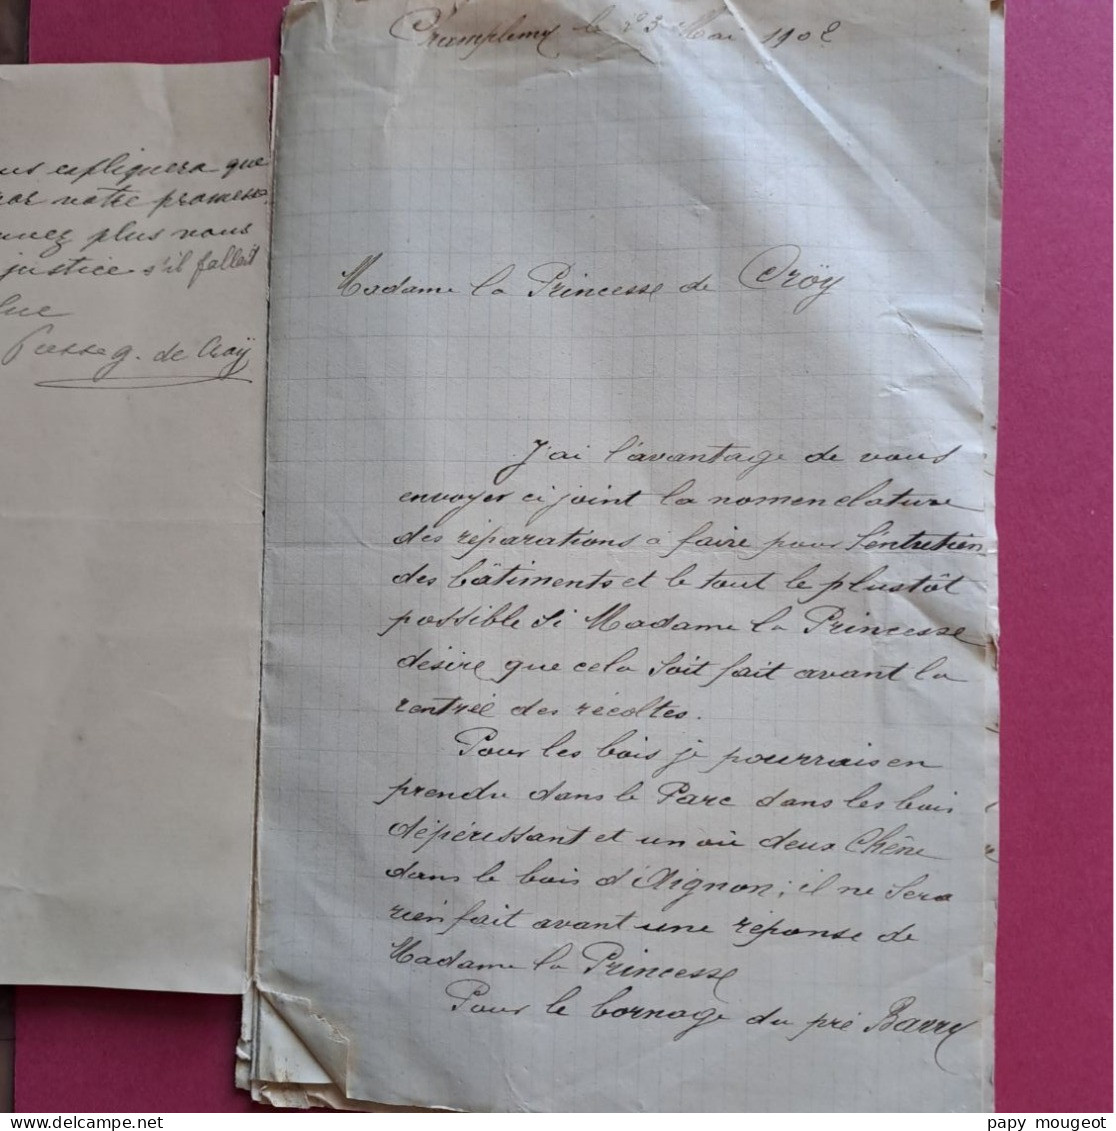 ous expliquera que
notre promesse
plus vous
justice s'il fallait
Pcesse G. de Croÿ
Champlemy le 23 Mai 1902
Madame la Princesse de Croÿ
J'ai l'avantage de vous
envoyer ci joint la nomenclature
des réparations à faire pour l'entretien
des bâtiments et le tout le plustôt
possible si Madame la Princesse
désire que cela soit fait avant la
rentrée des récoltes.
Pour les bois je pourrais en
prendre dans le Parc dans les bois
dépérissant et un où deux Chêne
dans le bois d'Aignon; il ne sera
rien fait avant une réponse de
Madame la Princesse
Pour le bornage du pré Barry
papy mougeot